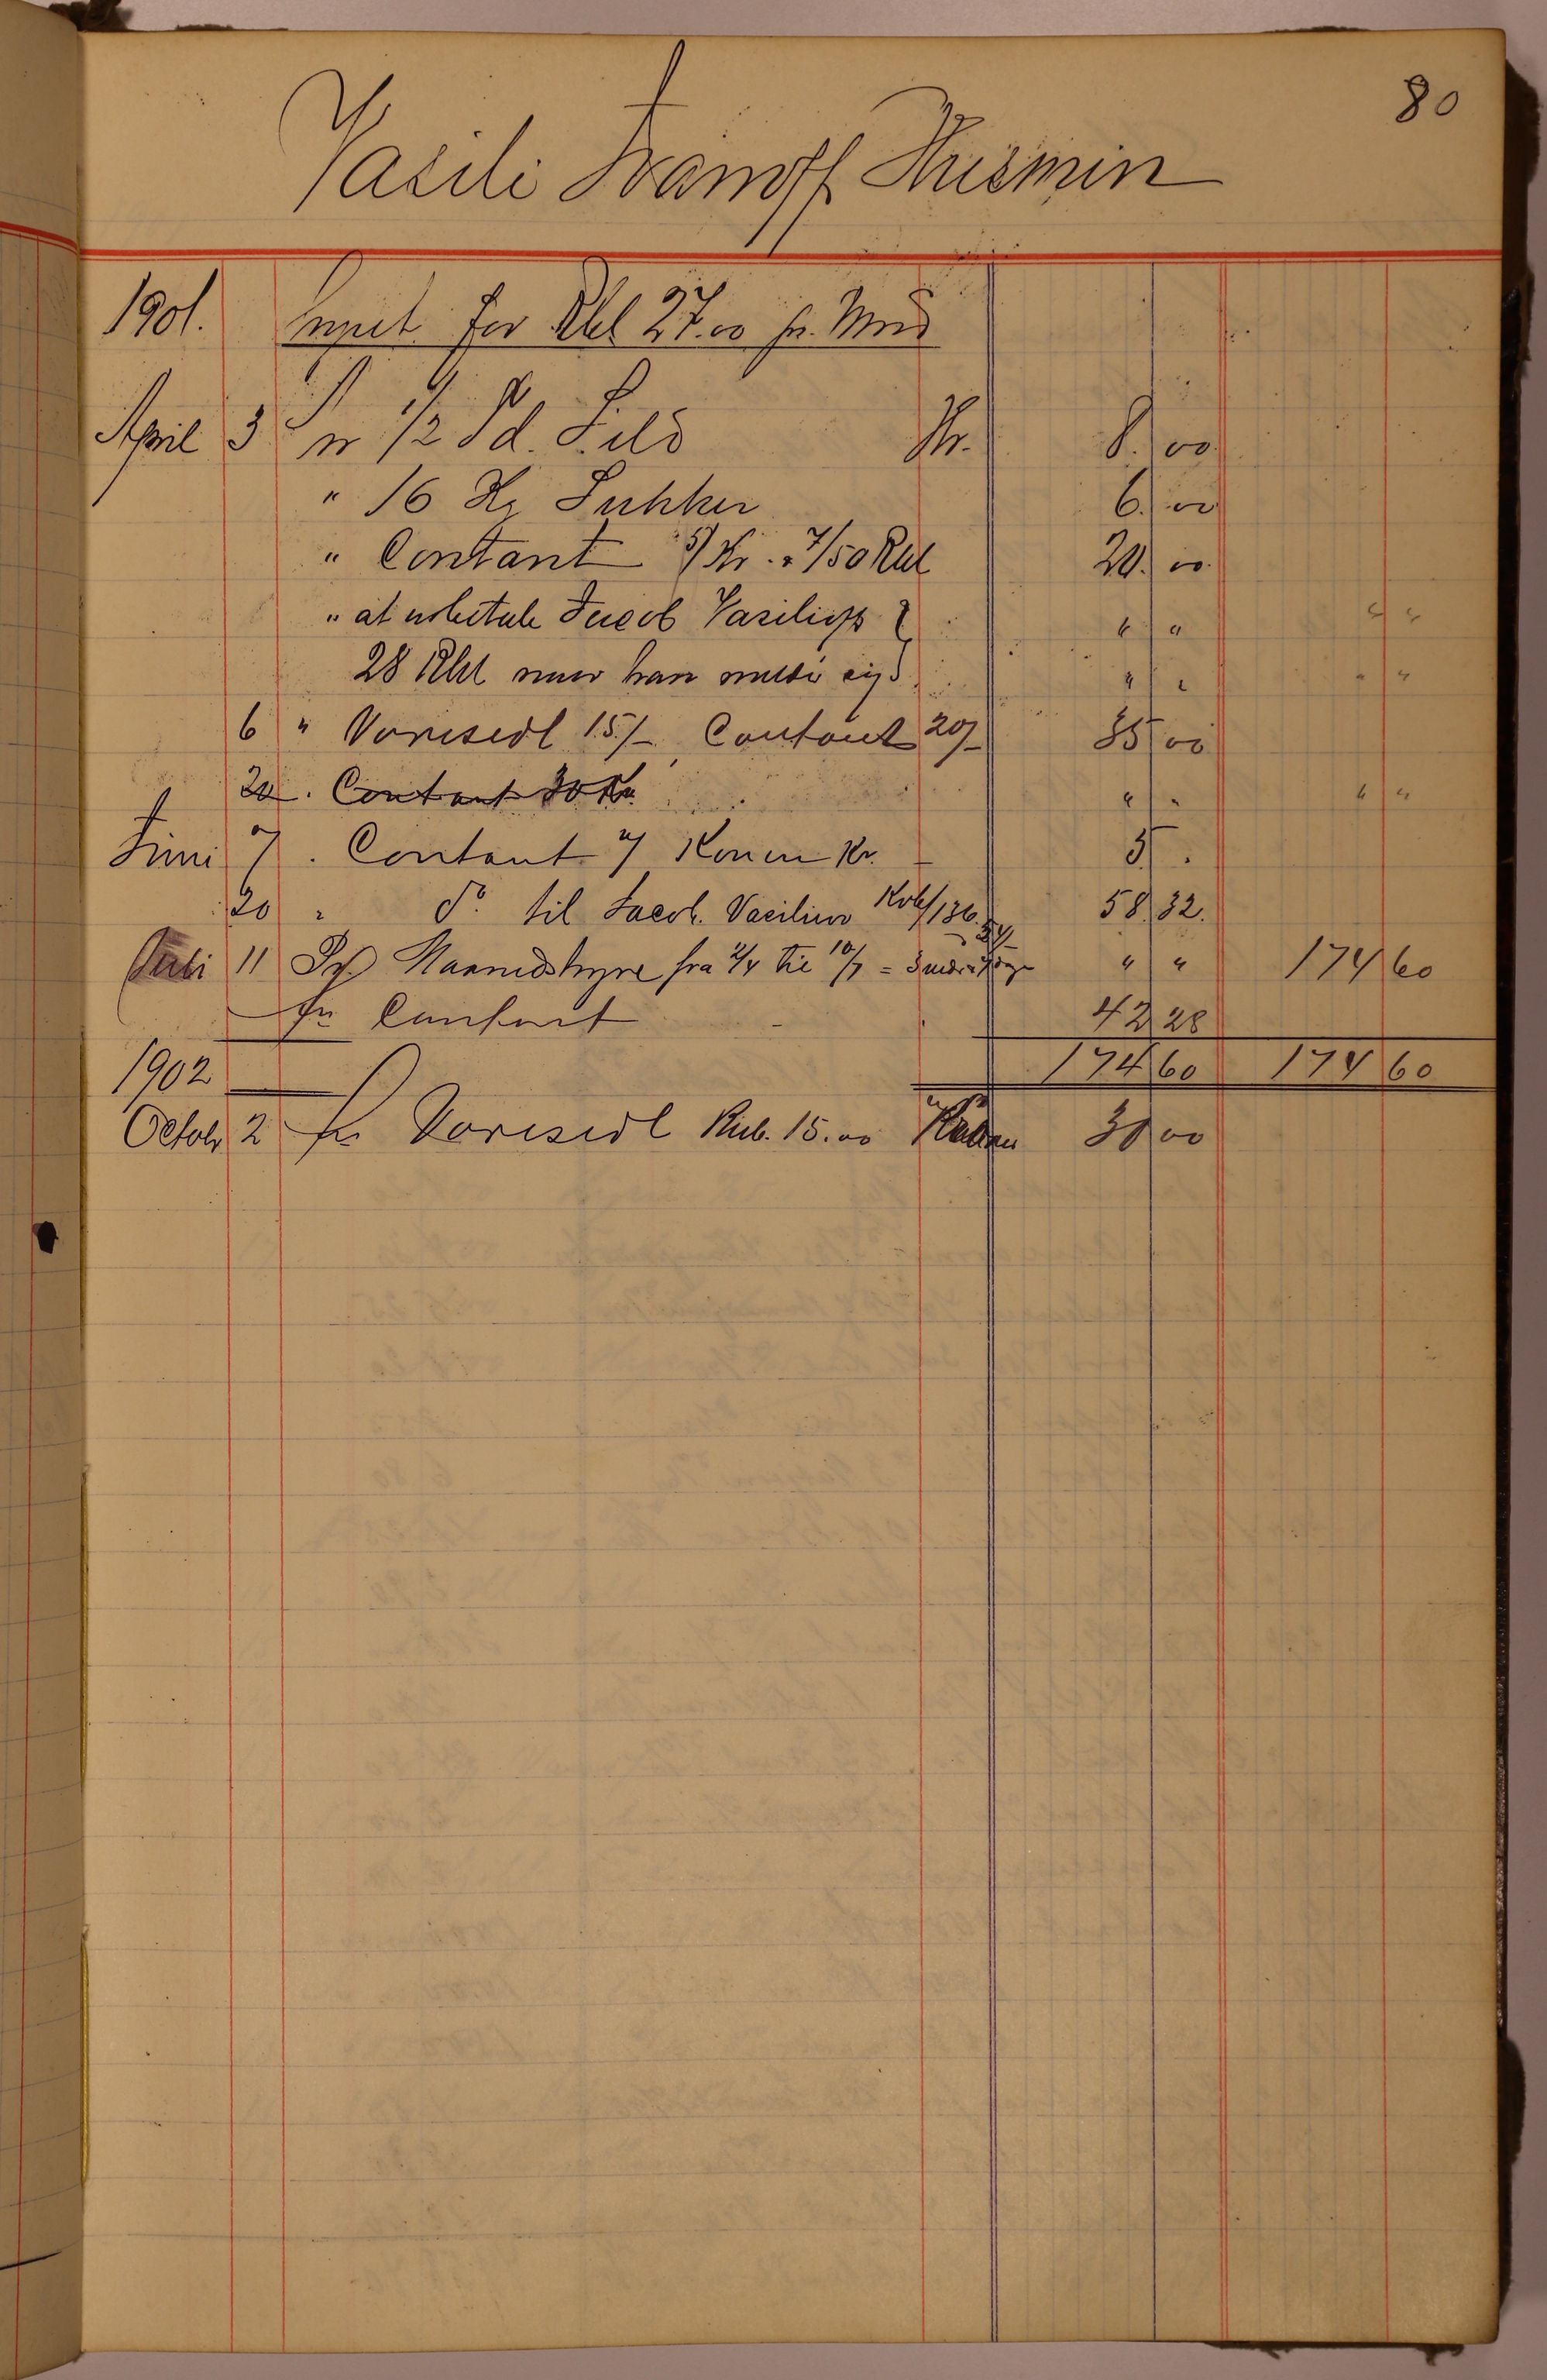 80
Vasili Ivanoff Kusmin
1901. for Rbl 27.00 pr. Mnd
April 3 1/2 Pd. Sild Kr. 8.00
" 16 Kg Sukker 6.00
" Contant 5/ Kr. 7/50 Rbl 20.00
" at udbetale Jacob Vasilioff " " " "
28 Rbl naar han " " " "
6 " Varesedl 15/- Contant 20/- 35 00
20 . Contant 30 Kr. " " " "
Juni 7 . Contant Konen Kr. 5 .
20 " do til Jacob. Vasilivo 58 32.
Juli 11 Pr Maanedshyre fra 2/4 til 10/7 = " " 174 60
pr Contant 42 28
174 60 174 60
1902
Octobr 2 pr Varesedl Rub. 15.00 30 00